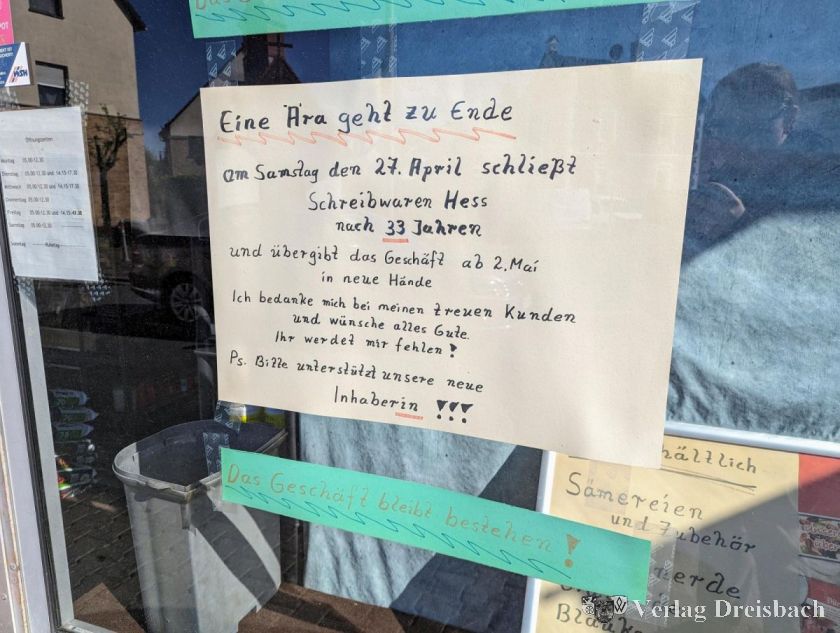 Das
Eine Ära geht zu Ende
am Samstag den 27. April schließt
Schreibwaren Hess
nach 33 Jahren
und übergibt das Geschäft ab 2. Mai
in neue Hände
Ich bedanke mich bei meinen treuen Kunden
und wünsche alles Gute.
Ihr werdet mir fehlen!
Ps. Bitte unterstützt unsere neue
Inhaberin !!!
Das Geschäft bleibt bestehen!
Öffnungszeiten
Montag 05.00-12.30
Dienstag 05.00-12.30 und 14.15-17.30
Mittwoch 05.00-12.30 und 14.15-17.30
Donnerstag 05.00-12.30 und 14.15-17.30
Freitag 05.00-12.30 und 14.15-
Samstag 05.00-12.30
Sonntag Ruhetag
hältlich
Sämereien
und Zubehör
erde
Blauk
Verlag Dreisbach